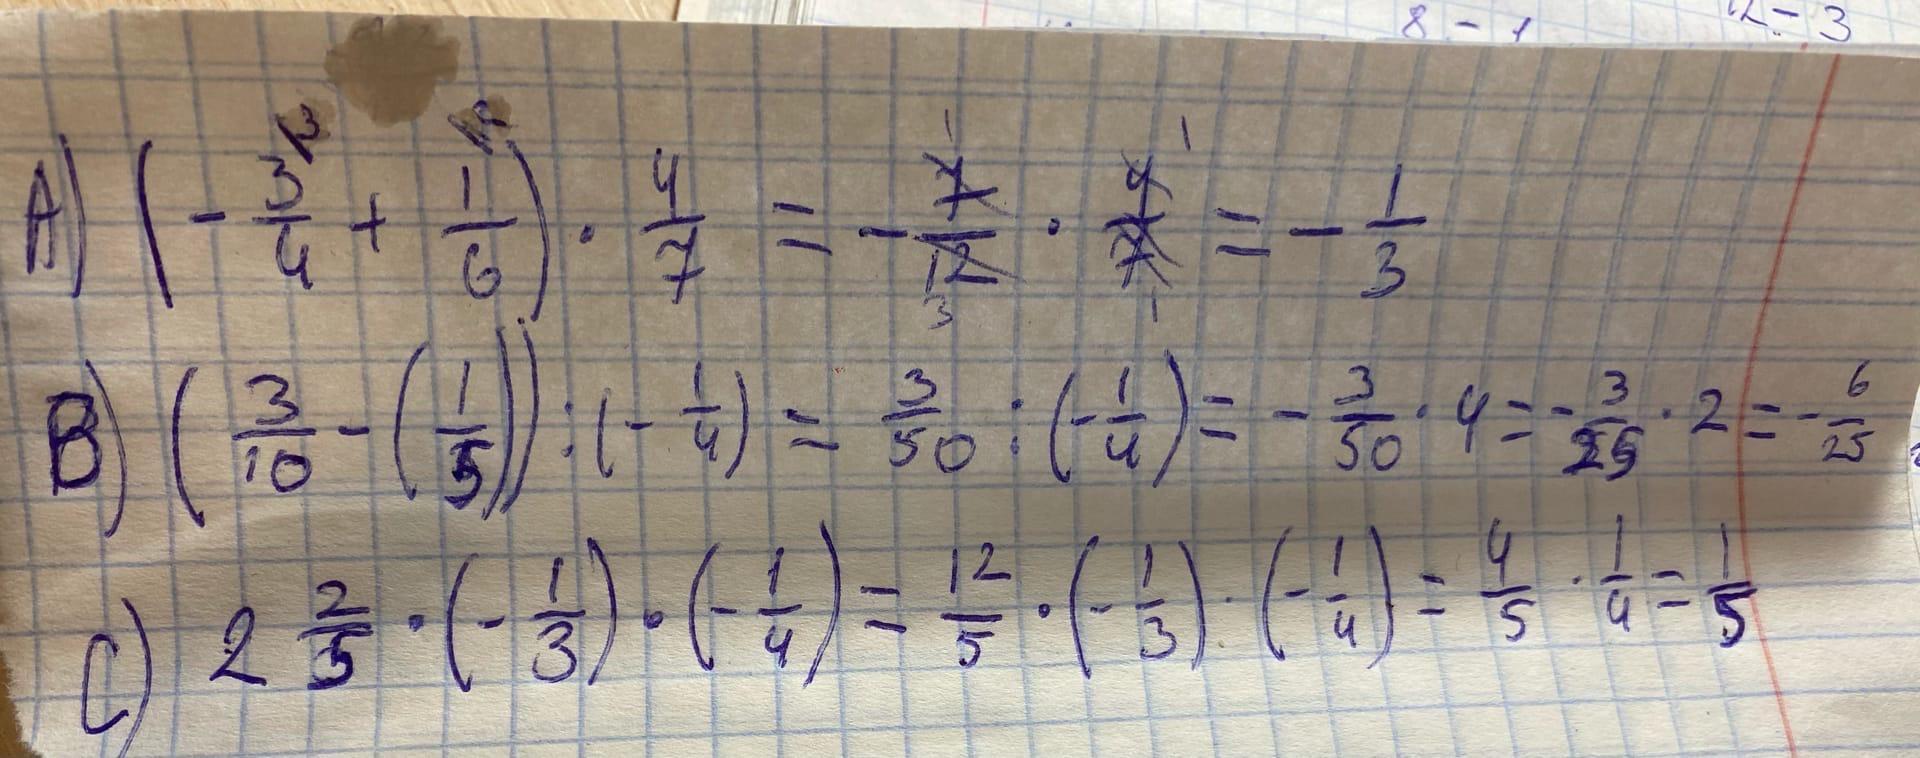 8 - 1 12 - 3
A) (- 3/4 + 1/6) · 4/7 = - 7/12 · 4/7 = - 1/3
B) (3/10 - (1/5)) : (- 1/4) = 3/50 : (- 1/4) = - 3/50 · 4 = - 3/25 · 2 = - 6/25
C) 2 2/5 · (- 1/3) · (- 1/4) = 12/5 · (- 1/3) · (- 1/4) = 4/5 · 1/4 = 1/5